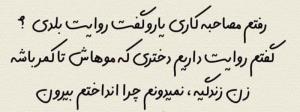 رفتم مصاحبه کاری یارو گفت روایت بلدی ؟
گفتم روایت داریم دختری که موهاش تا کمر باشه
زن زندگیه ، نمیدونم چرا انداختم بیرون